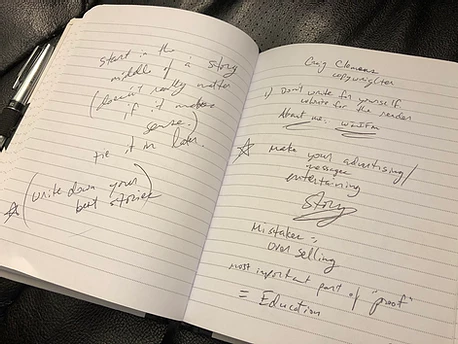 start in the
middle of a story
(doesn't really matter
if it makes
sense.)
tie it in later.
☆ (write down your
best stories)
Craig Clemens
copywrighter
1) Don't write for yourself
write for the reader
About me. WIIFM
☆ make your advertising/
messages
entertaining
Story
Mistake =
over selling
most important part of "proof"
= Education